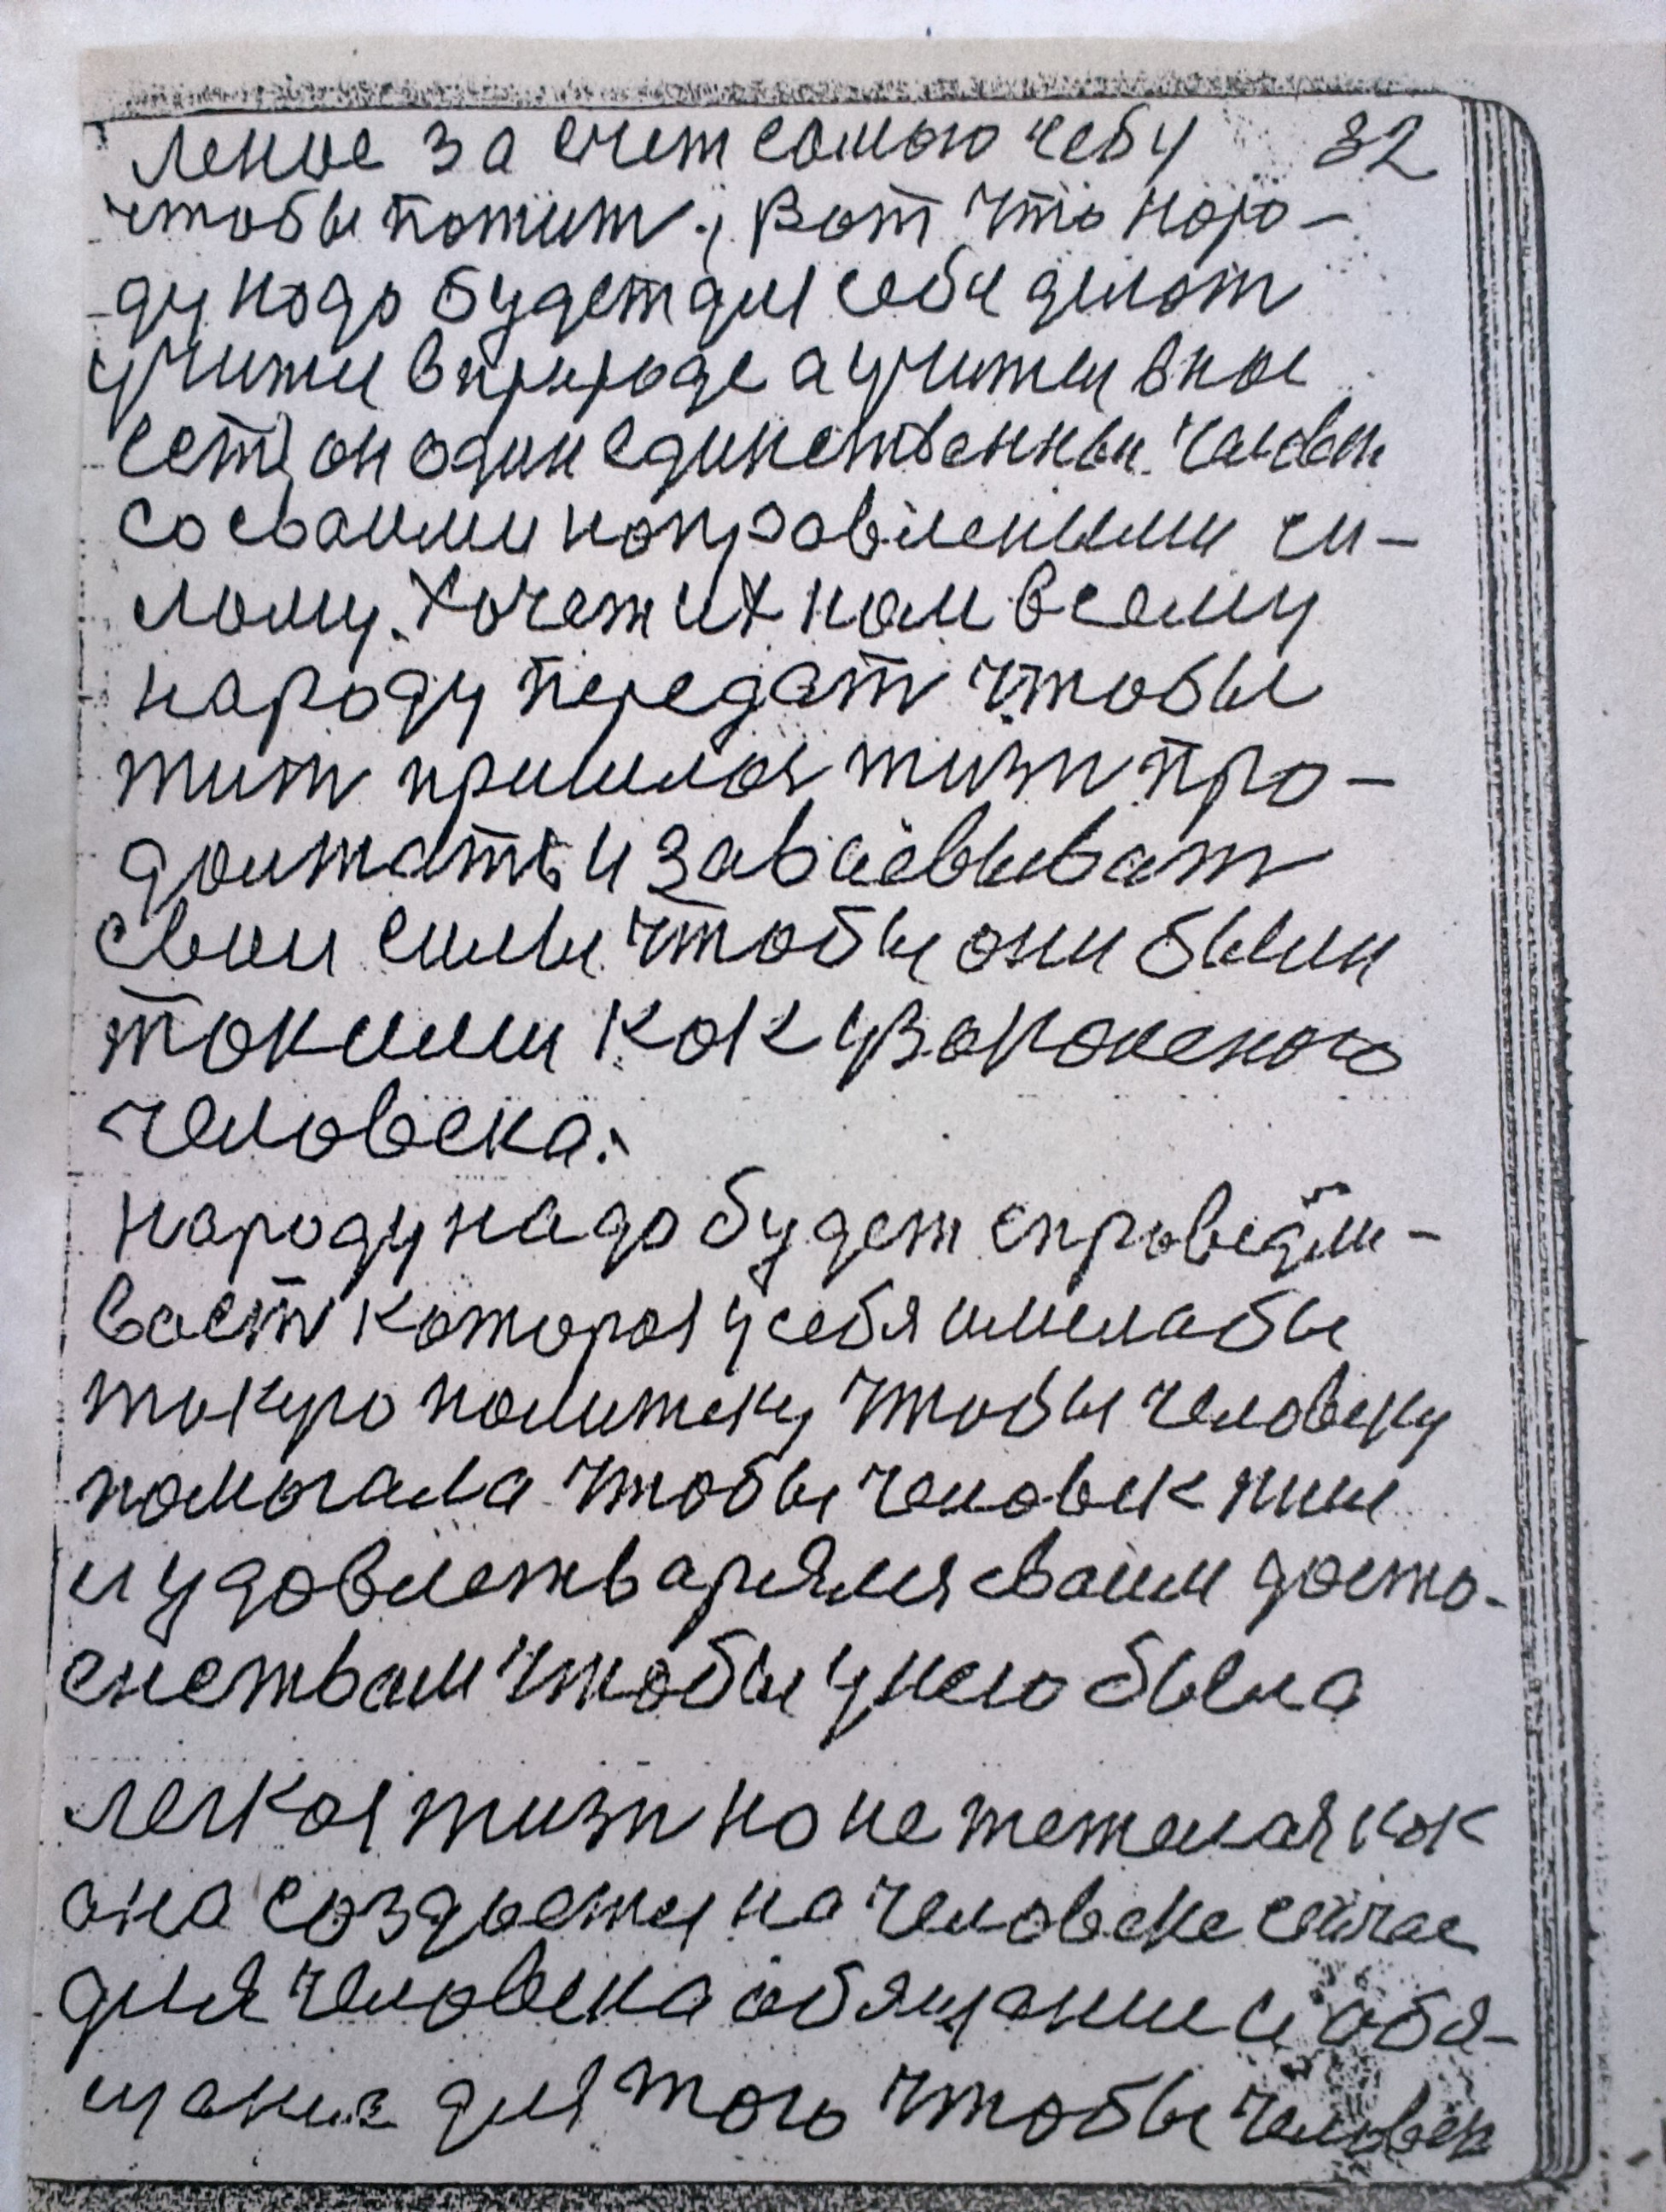 ление за счет самого себя 32
чтобы пожит, Вот что наро-
ду надо будет для себя делат
учится в природе а учител в нас
есть он один единственный человек
со сваими направлеными си-
лами. Хочет их нам всему
народу передат чтобы
жит пришлос жизн про-
должать и заваёвыват
сваи силы чтобы они были
такими как у закаленого
человека.
народу надо будет справедли-
васт которая у себя имела бы
такую политеку чтобы человеку
помогала чтобы человек жил
и удовлетварялся сваим досто-
енствам чтобы у него была
легкая жизн но не тежелая как
она создается на человеке сейчас
для человека обящание и обя-
щание для того чтобы человек